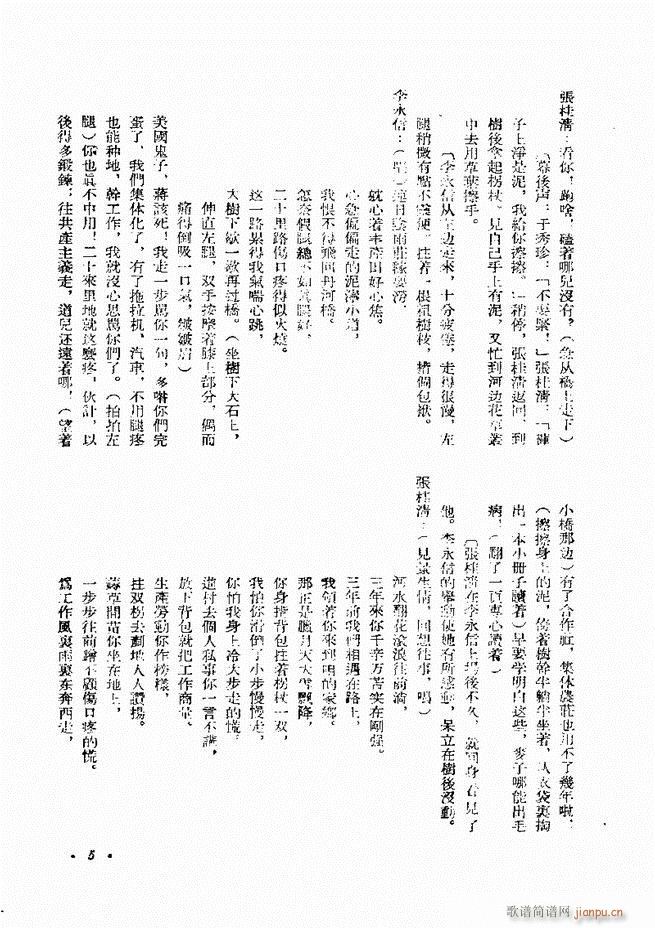 張桂淸：看你，跑啥，磕着哪兒沒有，（急从橋上走下）
（幕後声：于秀珍：「不要緊，」張桂淸：「褲
子上淨是泥，我給你擦擦。」稍停，張桂淸返回，到
樹後拿起柺杖。見自己手上有泥，又忙到河边花草叢
中去用草葉擦手。
（李永信从左边走來，十分疲倦，走得很慢，左
腿稍微有點不靈便。拄着一根氣樹枝，揹個包袱。
李永信：（唱）連日陰雨莊稼要澇，
就心着未產田好心焦。
心急偏偏走的泥濘小道，
我恨不得飛回丹河橋。
怎奈假腿總不如眞腿好，
二十里路傷口疼得似火燒。
这一路累得我氣喘心跳，
大樹下歇一歇再过橋。（坐樹下大石上，
伸直左腿，双手按摩着膝上部分，偶而
痛得倒吸一口氣，皱皱眉）
美國鬼子，蔣該死，我走一步罵你一句，多嗒你們完
蛋了，我們集体化了，有了拖拉机、汽車，不用腿疼
也能种地，幹工作，我就沒心思罵你們了。（拍拍左
腿）你也眞不中用，二十來里地就这麽疼，伙計，以
後得多鍛鍊，往共產主義走，道兒还遠着哪，（望着
小橋那边）有了合作社，集体農莊也用不了幾年啦，
（擦擦身上的泥，倚着樹幹半躺半坐着，从衣袋裏掏
出一本小冊子讀着）早要学明白这些，麥子哪能出毛
病，（翻了一頁專心讀着）
（張桂淸在李永信上場後不久，就回身看見了
他。李永信的舉動使她有所感動，呆立在樹後沒動。
張桂淸：（見景生情，回想往事，唱）
河水翻花滾滾往前淌，
三年來你千辛万苦实在剛强。
三年前我們相遇在路上，
我領着你來到咱的家鄉。
那正是臘月天大雪飄降，
你身揹背包拄着柺杖一双，
我怕你滑倒了小步慢慢走，
你怕我身上冷大步走的慌。
進村去個人私事你一言不講，
放下背包就把工作商量。
生產勞動你作榜樣，
拄双柺去劃地人人讚揚。
薅草開苗你坐在地上，
一步步往前蹭不顧傷口疼的慌。
爲工作風裏雨裏东奔西走，
·5·
歌谱简谱网
jianpu.cn